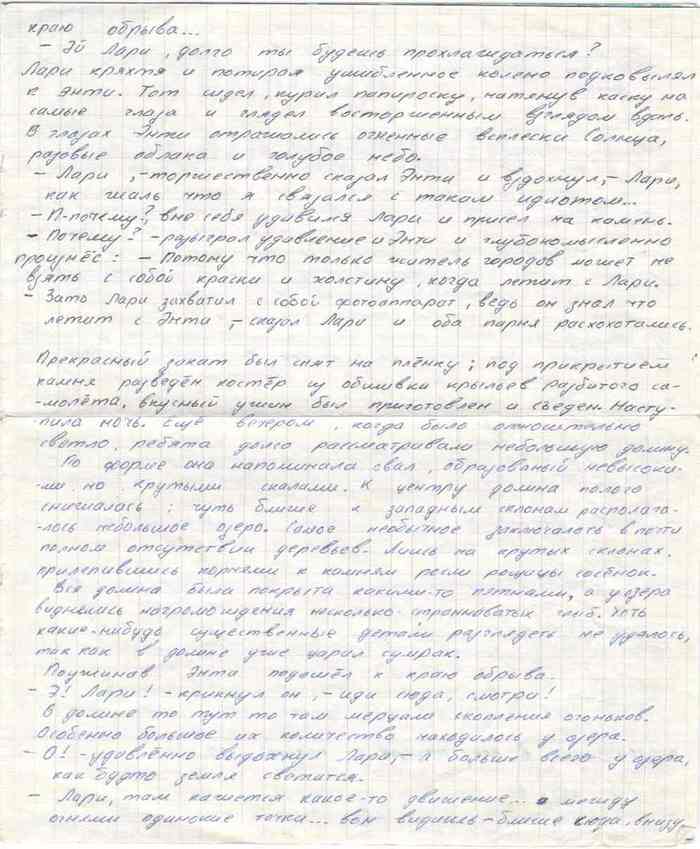 краю обрыва...
– Эй Лари, долго ты будешь прохлаждаться?
Лари кряхтя и потирая ушибленное колено подковылял
к Энти. Тот сидел, курил папироску, натянув каску на
самые глаза и глядел восторженным взглядом вдаль.
В глазах Энти отражались огненные всплески Солнца,
розовые облака и голубое небо.
– Лари, – торжественно сказал Энти и вздохнул, – Лари,
как жаль что я связался с таким идиотом...
– П-почему? вне себя удивился Лари и присел на камень.
– Почему? – разыграл удивление и Энти и глубокомысленно
произнёс: – Потому что только житель городов может не
взять с собой краски и холстину, когда летит с Лари.
– Зато Лари захватил с собой фотоаппарат, ведь он знал что
летит с Энти, – сказал Лари и оба парня расхохотались.
Прекрасный закат был снят на плёнку; под прикрытием
камня разведён костёр из обшивки крыльев разбитого са-
-молёта, вкусный ужин был приготовлен и съеден. Насту-
пила ночь. Ещё вечером, когда было относительно
светло, ребята долго рассматривали небольшую долину.
По форме она напоминала овал, образованый невысоки-
-ми но крутыми скалами. К центру долина полого
снижалась; чуть ближе к западным склонам располага-
-лось небольшое озеро. Самое необычное заключалось в почти
полном отсутствии деревьев. Лишь на крутых склонах,
прилепившись корнями к камням росли рощицы сосёнок.
Вся долина была покрыта какими-то пятнами, а у озера
виднелись нагромождения нескольких странноватых глыб. Хоть
какие-нибудь существенные детали разглядеть не удалось,
так как в долине уже царил сумрак.
Поужинав Энти подошёл к краю обрыва.
– Э! Лари! – крикнул он, – иди сюда, смотри!
В долине то тут то там мерцали скопления огоньков.
Особенно большое их количество находилось у озера.
– О! – удивлённо выдохнул Лари, – а больше всего у озера,
как будто земля светится.
– Лари, там кажется какое-то движение... между
огнями одинокие точки... вон видишь – ближе сюда, внизу –